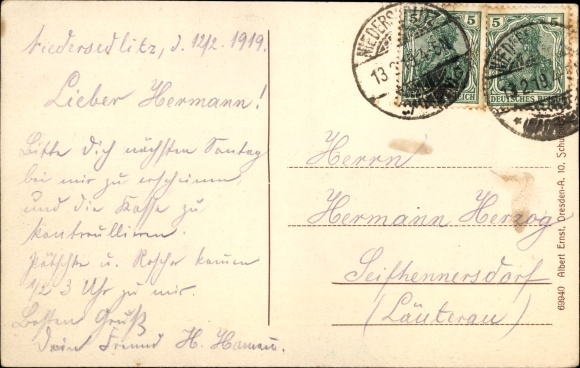 Niedersedlitz, d. 12/2. 1919.
Lieber Hermann!
Bitte Dich nächsten Sontag
bei mir zu erscheinen
und die Kasse zu
kontrollieren.
u. kommen
1/2 3 Uhr zu mir.
Besten Gruß
Dein Freund H.
NIEDERSEDLITZ
13.2.19.
5 5
DEUTSCHES REICH
5 5
DEUTSCHES REICH
Herrn
Hermann Herzog
Seifhennersdorf
(Läuterau)
69940 Albert Ernst, Dresden-A. 10, Schu